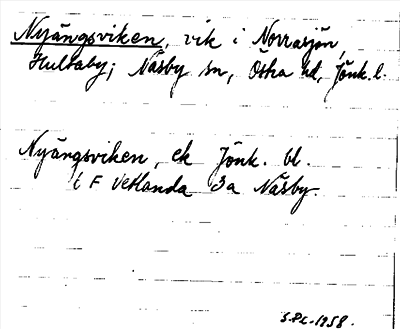 Nyängsviken, vik i Norrasjön,
Hultaby; Näsby sn, Östra hd, Jönk. l.
Nyängsviken, ek Jönk. bl.
t F Vetlanda 3a Näsby.
S.P.L. 1958.